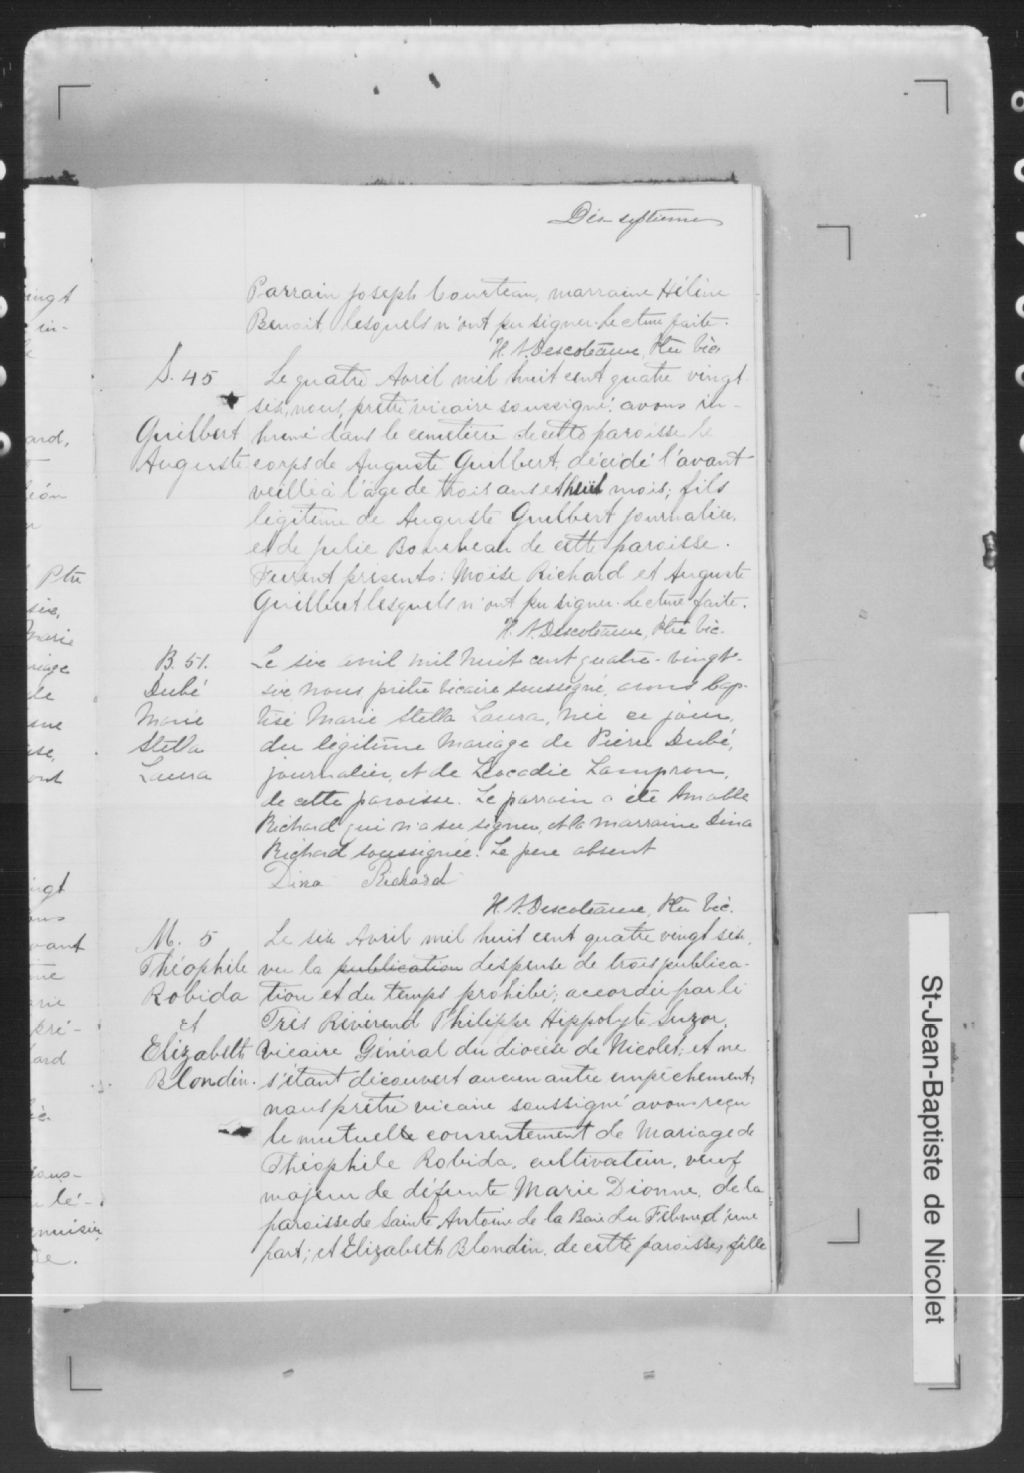 Dix-septième
Parrain Joseph Courteau, marraine Hélène
Benoit, lesquels n'ont pu signer. Lecture faite.
H. N. Descoteaux, Ptre Vic.
S. 45
Guilbert
Auguste
Le quatre Avril mil huit cent quatre vingt
six, nous, prêtre vicaire soussigné, avons in-
humé dans le cimetière de cette paroisse le
corps de Auguste Guilbert, décédé l'avant
veille à l'âge de trois ans et huit mois; fils
légitime de Auguste Guilbert journalier,
et de Julie Bourbeau de cette paroisse.
Furent présents: Moïse Richard et Auguste
Guilbert lesquels n'ont pu signer. Lecture faite.
H. N. Descoteaux, Ptre Vic.
B. 51.
Dubé
Marie
Stella
Laura
Le six avril mil huit cent quatre-vingt-
six nous prêtre vicaire soussigné, avons bap-
tisé Marie Stella Laura, née ce jour,
du légitime mariage de Pierre Dubé,
journalier, et de Léocadie Lampron,
de cette paroisse. Le parrain a été Amable
Richard qui n'a su signer, et la marraine Dina
Richard soussignée. Le père absent
Dina Richard
H. N. Descoteaux, Ptre Vic.
M. 5
Théophile
Robida
et
Elizabeth
Blondin.
Le six Avril mil huit cent quatre vingt six,
vu la publication dispense de trois publica-
tion et du temps prohibé; accordée par le
Très Révérend Philippe Hippolyte Suzor,
Vicaire Général du diocèse de Nicolet; et ne
s'étant découvert aucun autre empêchement,
nous prêtre vicaire soussigné avons reçu
le mutuel consentement de Mariage de
Théophile Robida, cultivateur, veuf
majeur de défunte Marie Dionne, de la
paroisse de Sainte Antoine de la Baie du Febvre d'une
part; et Elizabeth Blondin, de cette paroisse, fille
St-Jean-Baptiste de Nicolet